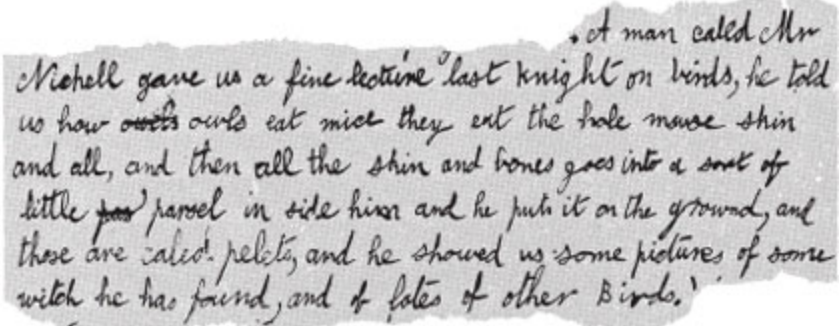 . A man called Mr
Nichell gave us a fine lecture last knight on birds, he told
us how owls owls eat mice they eat the hole mouse skin
and all, and then all the skin and bones goes into a sort of
little par parsel in side him and he puts it on the ground, and
those are caled pelets, and he showed us some pictures of some
witch he has found, and of lotes of other Birds.'